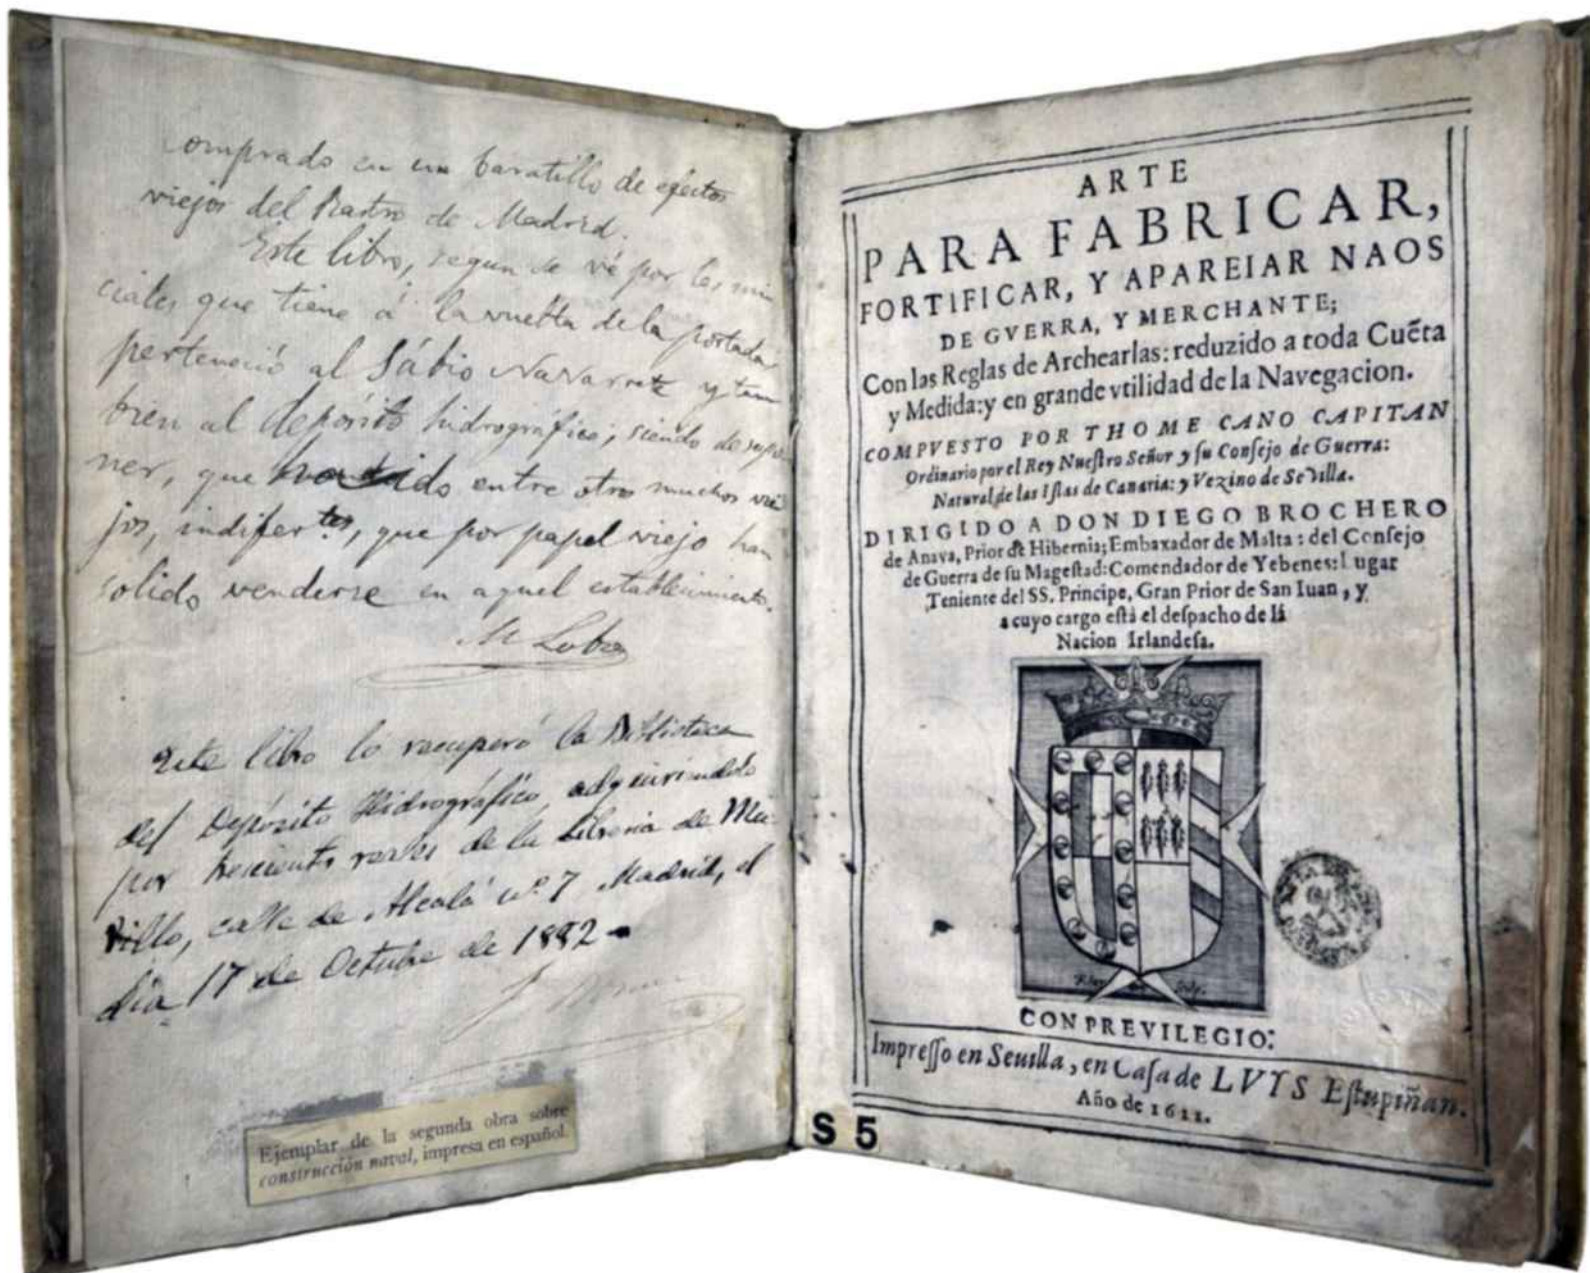 Comprado en un baratillo de efectos
viejos del Rastro de Madrid.
Este libro, segun se vé por las ini
ciales que tiene á la vuelta de la portada
perteneció al Sábio Navarrete y tam
bien al depósito hidrográfico; siendo de supo
ner, que entre otros muchos vie
jos, indifer.tes, que por papel viejo han
solido venderse en aquel establecimiento.
M Lobo
Este libro lo recuperó la Biblioteca
del Depósito Hidrográfico, adquiriendolo
por trescientos reales de la Libreria de Mu
rillo, calle de Alcalá nº 7 Madrid, el
dia 17 de Octubre de 1882-
Ejemplar de la segunda obra sobre
construcción naval, impresa en español.
ARTE
PARA FABRICAR,
FORTIFICAR, Y APAREIAR NAOS
DE GVERRA, Y MERCHANTE;
Con las Reglas de Archearlas: reduzido a toda Cuẽta
y Medida: y en grande vtilidad de la Navegacion.
COMPVESTO POR THOME CANO CAPITAN
Ordinario por el Rey Nueſtro Señor y ſu Conſejo de Guerra:
Natural de las Iſlas de Canaria: y Vezino de Sevilla.
DIRIGIDO A DON DIEGO BROCHERO
de Anaya, Prior de Hibernia; Embaxador de Malta: del Conſejo
de Guerra de ſu Mageſtad: Comendador de Yebenes: Lugar
Teniente del SS. Principe, Gran Prior de San Iuan, y
a cuyo cargo eſtà el deſpacho de la
Nacion Irlandeſa.
CON PREVILEGIO:
Impreſſo en Seuilla, en Caſa de LVYS Eſtupiñan.
Año de 1611.
S 5